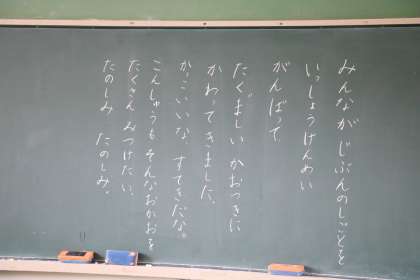 みんなが じぶんのしごとを
いっしょうけんめい
がんばって、
たくましい かおつきに
かわってきました。
かっこいいな、すてきだな。
こんしゅうも そんなおかおを
たくさん みつけたい。
たのしみ たのしみ。